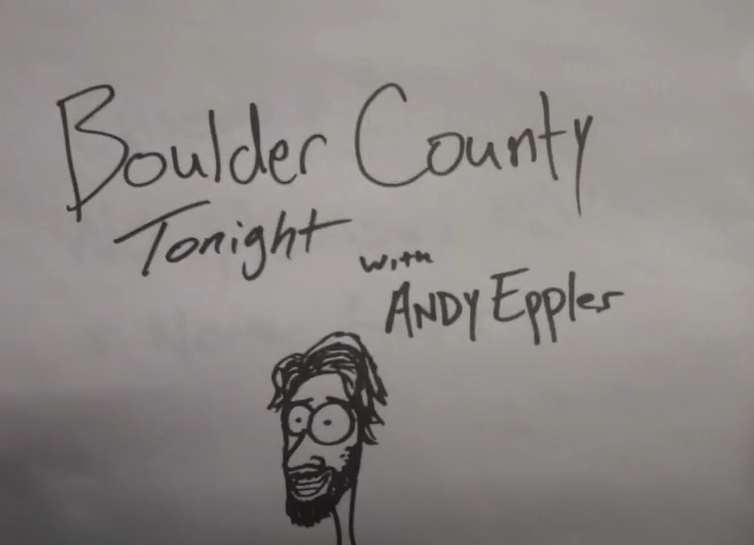 Boulder County
Tonight
with
ANDY Eppler